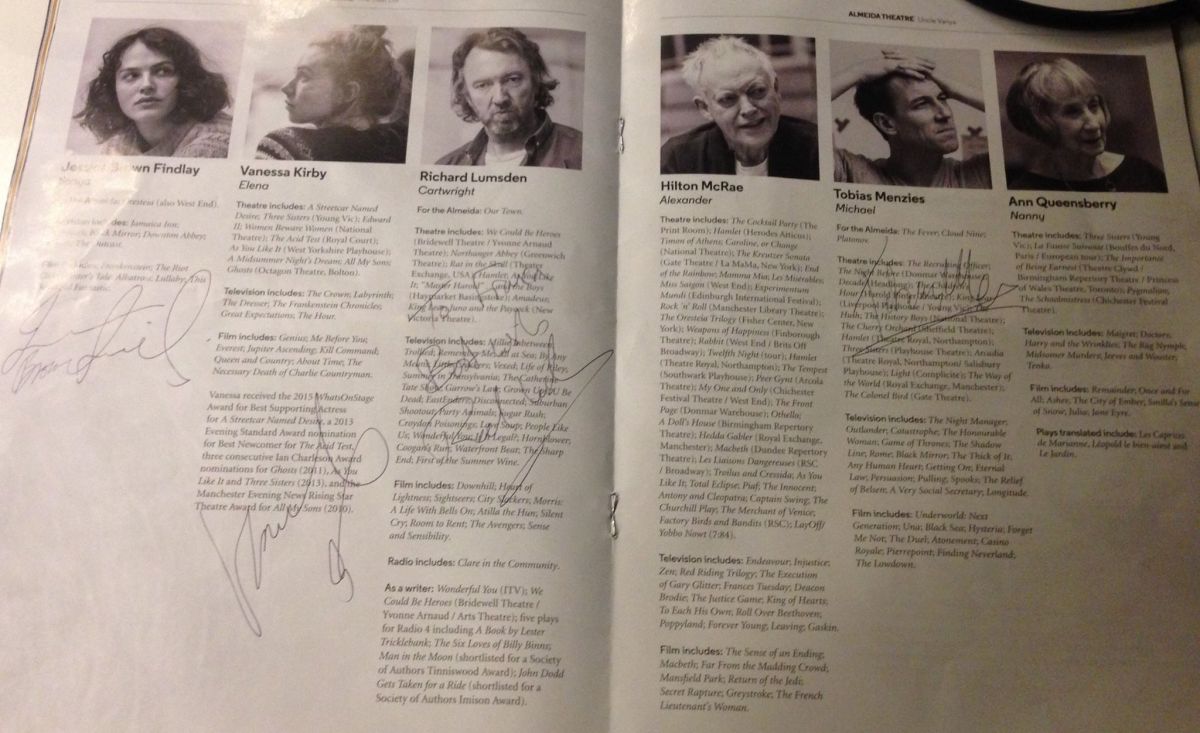 ALMEIDA THEATRE Uncle Vanya
Jessica Brown Findlay
Sonya
Oresteia (also West End).
Jamaica Inn;
Black Mirror; Downton Abbey;
The Outcast.
Frankenstein; The Riot
Club; Winter's Tale; Albatross; Lullaby; This
Beautiful Fantastic.
Vanessa Kirby
Elena
Theatre includes: A Streetcar Named
Desire; Three Sisters (Young Vic); Edward
II; Women Beware Women (National
Theatre); The Acid Test (Royal Court);
As You Like It (West Yorkshire Playhouse);
A Midsummer Night's Dream; All My Sons;
Ghosts (Octagon Theatre, Bolton).
Television includes: The Crown; Labyrinth;
The Dresser; The Frankenstein Chronicles;
Great Expectations; The Hour.
Film includes: Genius; Me Before You;
Everest; Jupiter Ascending; Kill Command;
Queen and Country; About Time; The
Necessary Death of Charlie Countryman.
Vanessa received the 2015 WhatsOnStage
Award for Best Supporting Actress
for A Streetcar Named Desire, a 2013
Evening Standard Award nomination
for Best Newcomer for The Acid Test,
three consecutive Ian Charleson Award
nominations for Ghosts (2011), As You
Like It and Three Sisters (2013), and the
Manchester Evening News Rising Star
Theatre Award for All My Sons (2010).
Richard Lumsden
Cartwright
For the Almeida: Our Town.
Theatre includes: We Could Be Heroes
(Bridewell Theatre / Yvonne Arnaud
Theatre); Northanger Abbey (Greenwich
Theatre); Rat in the Skull (Theater
Exchange, USA); Hamlet; As You Like
It; "Master Harold" ...and the Boys
(Haymarket Basingstoke); Amadeus;
King Lear; Juno and the Paycock (New
Victoria Theatre).
Television includes: Millie Inbetween;
Trollied; Remember Me; All at Sea; By Any
Means; Lifting; Vexed; Life of Riley;
Summer in Transylvania; The Catherine
Tate Show; Garrow's Law; Grown Ups; DU Be
Dead; EastEnders; Disconnected; Suburban
Shootout; Party Animals; Sugar Rush;
Croydon Poisonings; Love Soup; People Like
Us; Wonderful You; Is It Legal?; Hornblower;
Coogan's Run; Waterfront Beat; The Sharp
End; First of the Summer Wine.
Film includes: Downhill; Heart of
Lightness; Sightseers; City Slackers; Morris:
A Life With Bells On; Atilla the Hun; Silent
Cry; Room to Rent; The Avengers; Sense
and Sensibility.
Radio includes: Clare in the Community.
As a writer: Wonderful You (ITV); We
Could Be Heroes (Bridewell Theatre /
Yvonne Arnaud / Arts Theatre); five plays
for Radio 4 including A Book by Lester
Tricklebank; The Six Loves of Billy Binns;
Man in the Moon (shortlisted for a Society
of Authors Tinniswood Award); John Dodd
Gets Taken for a Ride (shortlisted for a
Society of Authors Imison Award).
Hilton McRae
Alexander
Theatre includes: The Cocktail Party (The
Print Room); Hamlet (Herodes Atticus);
Timon of Athens; Caroline, or Change
(National Theatre); The Kreutzer Sonata
(Gate Theatre / La MaMa, New York); End
of the Rainbow; Mamma Mia; Les Miserables;
Miss Saigon (West End); Experimentum
Mundi (Edinburgh International Festival);
Rock 'n' Roll (Manchester Library Theatre);
The Oresteia Trilogy (Fisher Center, New
York); Weapons of Happiness (Finborough
Theatre); Rabbit (West End / Brits Off
Broadway); Twelfth Night (tour); Hamlet
(Theatre Royal, Northampton); The Tempest
(Southwark Playhouse); Peer Gynt (Arcola
Theatre); My One and Only (Chichester
Festival Theatre / West End); The Front
Page (Donmar Warehouse); Othello;
A Doll's House (Birmingham Repertory
Theatre); Hedda Gabler (Royal Exchange,
Manchester); Macbeth (Dundee Repertory
Theatre); Les Liaisons Dangereuses (RSC
/ Broadway); Troilus and Cressida; As You
Like It; Total Eclipse; Puf; The Innocent;
Antony and Cleopatra; Captain Swing; The
Churchill Play; The Merchant of Venice;
Factory Birds and Bandits (RSC); LayOff/
Yobbo Nowt (7:84).
Television includes: Endeavour; Injustice;
Zen; Red Riding Trilogy; The Execution
of Gary Glitter; Frances Tuesday; Deacon
Brodie; The Justice Game; King of Hearts;
To Each His Own; Roll Over Beethoven;
Poppyland; Forever Young; Leaving; Gaskin.
Film includes: The Sense of an Ending;
Macbeth; Far From the Madding Crowd;
Mansfield Park; Return of the Jedi;
Secret Rapture; Greystroke; The French
Lieutenant's Woman.
Tobias Menzies
Michael
For the Almeida: The Fever; Cloud Nine;
Platonov.
Theatre includes: The Recruiting Officer;
The Night Before (Donmar Warehouse);
Decade (Headlong); The Children's
Hour (Harold Pinter Theatre); King Lear
(Liverpool Playhouse / Young Vic); The
Hush; The History Boys (National Theatre);
The Cherry Orchard (Sheffield Theatre);
Hamlet (Theatre Royal, Northampton);
Three Sisters (Playhouse Theatre); Arcadia
(Theatre Royal, Northampton/ Salisbury
Playhouse); Light (Complicite); The Way of
the World (Royal Exchange, Manchester);
The Colonel Bird (Gate Theatre).
Television includes: The Night Manager;
Outlander; Catastrophe; The Honourable
Woman; Game of Thrones; The Shadow
Line; Rome; Black Mirror; The Thick of It;
Any Human Heart; Getting On; Eternal
Law; Persuasion; Pulling; Spooks; The Relief
of Belsen; A Very Social Secretary; Longitude.
Film includes: Underworld: Next
Generation; Una; Black Sea; Hysteria; Forget
Me Not; The Duel; Atonement; Casino
Royale; Pierrepoint; Finding Neverland;
The Lowdown.
Ann Queensberry
Nanny
Theatre includes: Three Sisters (Young
Vic); La Fausse Suivante (Bouffes du Nord,
Paris / European tour); The Importance
of Being Earnest (Theatre Clwyd /
Birmingham Repertory Theatre / Princess
of Wales Theatre, Toronto); Pygmalion;
The Schoolmistress (Chichester Festival
Theatre).
Television includes: Maigret; Doctors;
Harry and the Wrinklies; The Rag Nymph;
Midsomer Murders; Jeeves and Wooster;
Tenko.
Film includes: Remainder; Once and For
All; Ashes; The City of Ember; Smilla's Sense
of Snow; Julia; Jane Eyre.
Plays translated include: Les Caprices
de Marianne, Léopold le bien-aimé and
Le Jardin.